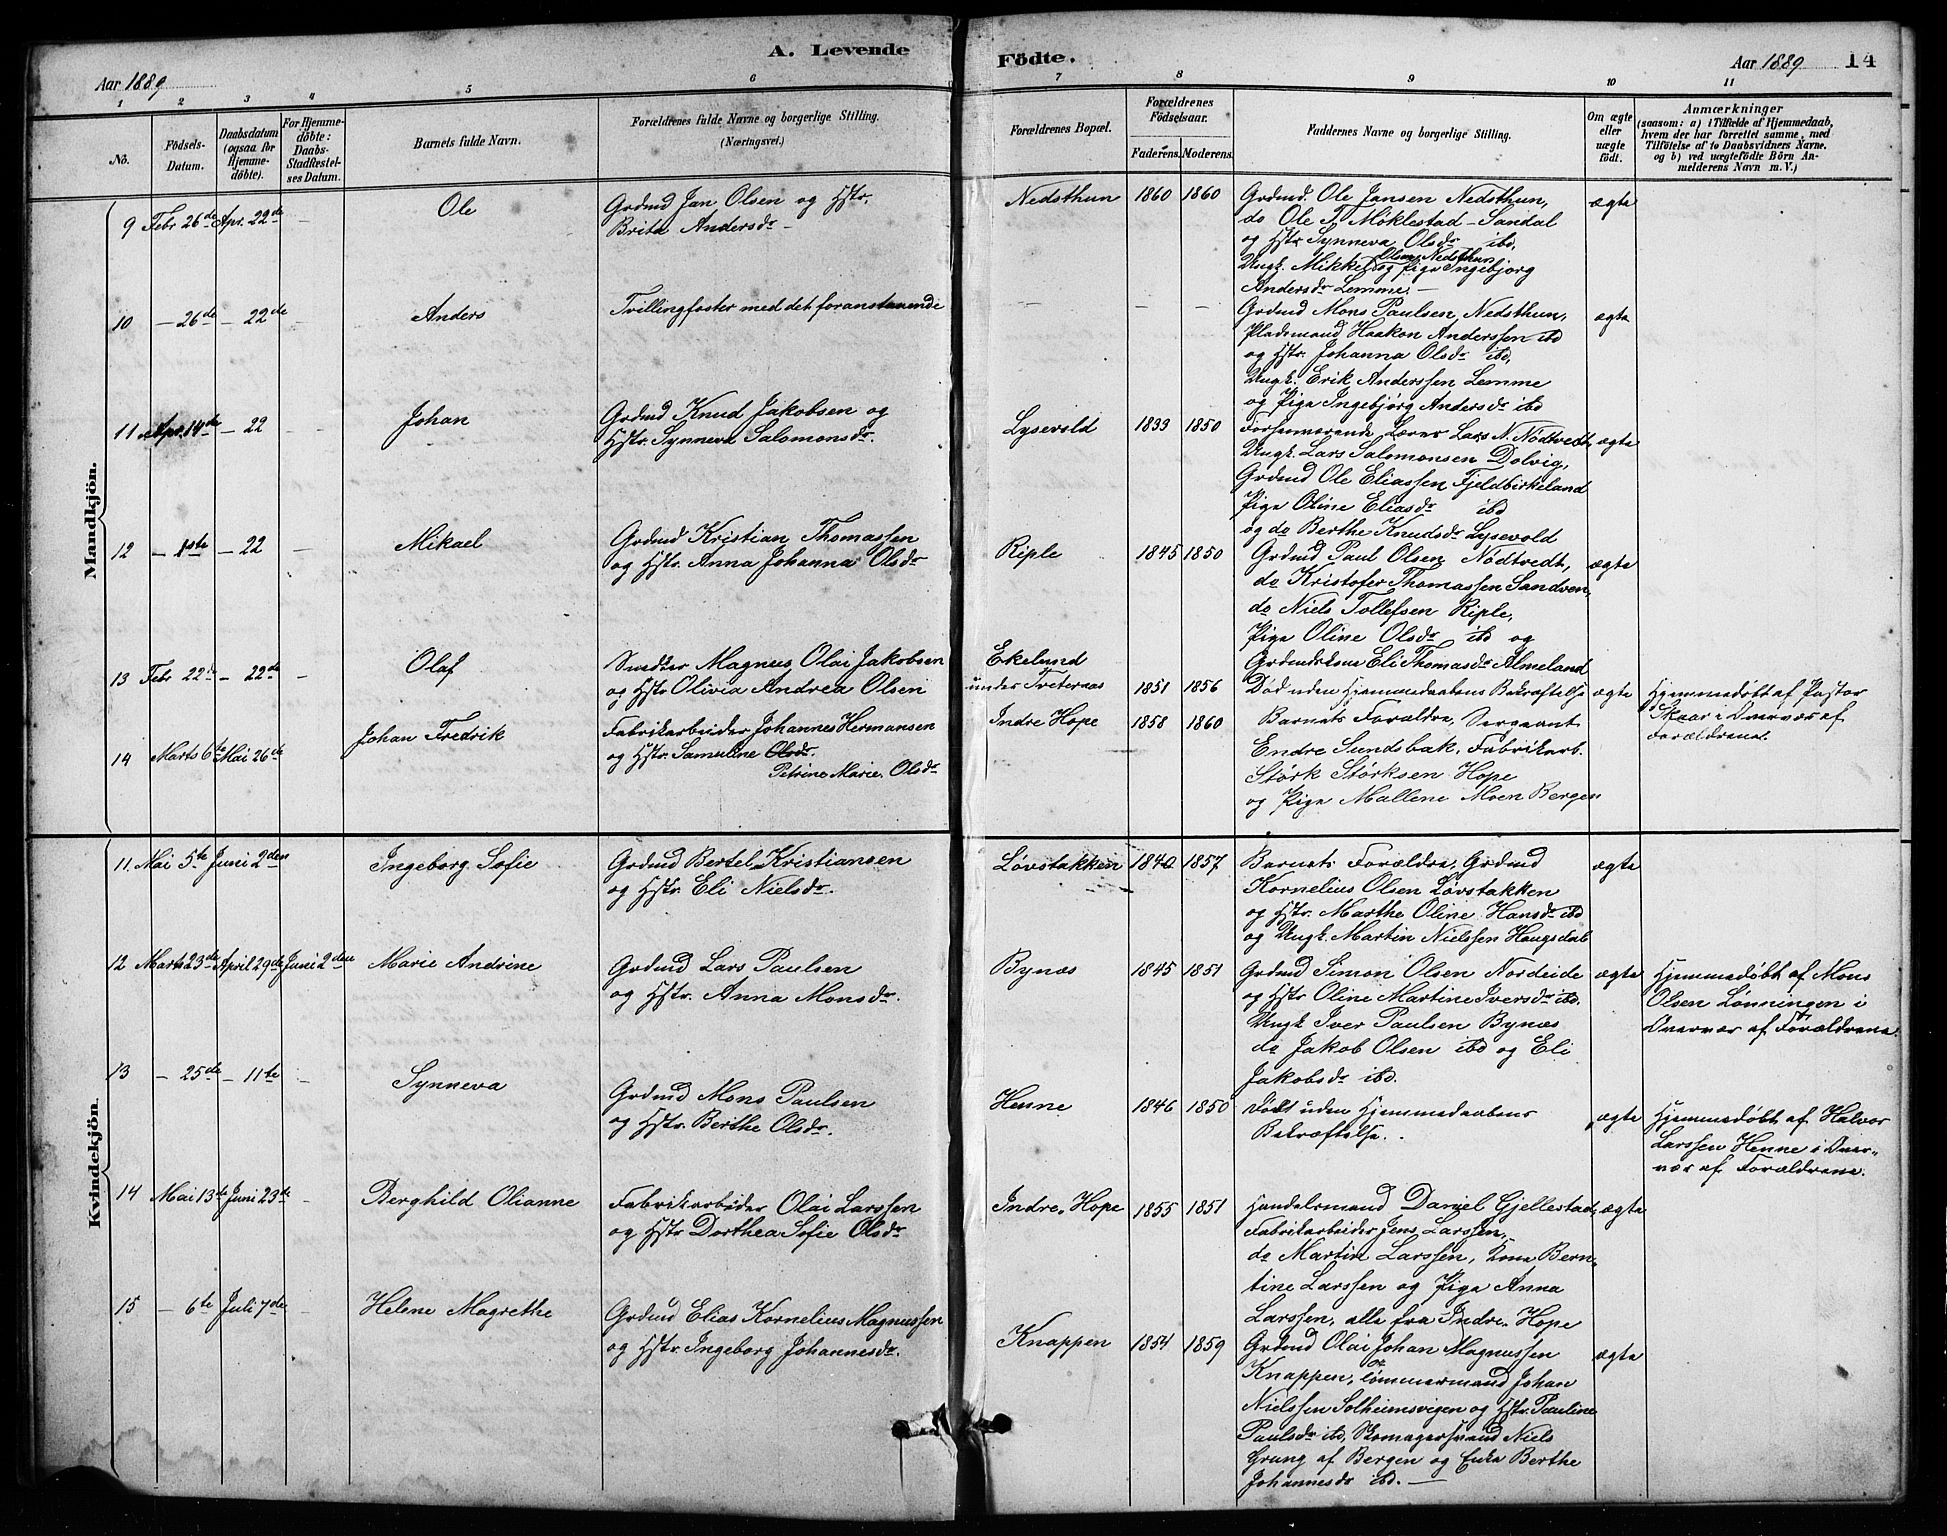 A. Levende Födte.
Aar 1889
Aar 1889 14
1 2 3 4 5 6 7 8 9 10 11
No.
Födsels-Datum.
Daabsdatum (ogsaa for Hjemmedöbte).
For Hjemmedöbte: Daabs-Stadfæstelses Datum.
Barnets fulde Navn.
Forældrenes fulde Navne og borgerlige Stilling. (Næringsvei.)
Forældrenes Bopæl.
Forældrenes Födselsaar.
Faderens. Moderens.
Faddernes Navne og borgerlige Stilling.
Om ægte eller uægte födt.
Anmærkninger
(saasom: a) i Tilfælde af Hjemmedaab, hvem der har forrettet samme, med Tilföielse af to Daabsvidners Navne. og b) ved uægtefödte Börn Anmelderens Navn m. V.)
Mandkjön.
9 Febr 26de Apr. 22de – Ole
Grdmd Jan Olsen og Hstr.
Brita Andersdr –
Nedsthun 1860 1860
Grdmd. Ole Jansen Nedsthun,
do Ole T. Møklestad – Sandal
og Hstr Synneva Olsdr ibd,
Ungk. Mikkel Olsen Nedsthun og Pige Ingebjorg
Andersdr Lemme. –
ægte
10 – 26de – 22de – Anders
Tvillingfoster med det foranstaaende
– – –
Grdmd Mons Paulsen, Nedsthun,
Pladsmand Haakon Anderssen ibd
og Hstr. Johanna Olsdr ibd,
Ungk. Erik Anderssen Lemme
og Pige Ingebjørg Andersdr ibd
ægte
11 Apr. 14de – 22 Johan
Grdmd Knud Jakobsen og
Hstr. Synneva Salomonsdr.
Lysevold 1833 1850
Forhenværende Lærer Lars N. Nödtvedt,
Ungk. Lars Salomonsen Dolvig,
Grdmd Ole Eliassen Fjeldbirkeland
Pige Oline Eliasdr ibd
og do Berthe Knudsdr Lysevold
ægte
12 – 1ste – 22 – Mikael
Grdmd Kristian Thomassen
og Hstr. Anna Johanna Olsdr
Riple 1845 1850
Grdmd Paul Olsen Nödtvedt,
do Kristofer Thomassen Sandven,
do Niels Tollefsen Riple,
Pige Oline Olsdr ibd og
Grdmdskone Eli Thomasdr Almeland
ægte
13 Febr 22de – 22de – Olaf
Snedker Magnus Olai Jakobsen
og Hstr Olivia Andrea Olsen
Ekelund
under Tveternæs 1851 1856
Død uden Hjemmedaabens Bekræftelse
ægte
Hjemmedøbt af Pastor
Skaar i Overvær af
Forældrene.
14 Marts 6te Mai 26de Johan Fredrik
Fabrikarbeider Johannes Hermansen
og Hstr. Samuline Olsdr
Petrine Marie Olsdr
Indre Hope 1858 1860
Barnets Forældre, Sergeant
Endre Sundsbak, Fabrikarb.
Størk Størksen Hope
og Pige Mallene Moen Bergen
Kvindekjön.
11 Mai 5te Juni 2den Ingeborg Sofie
Grdmd Bertel Kristiansen
og Hstr. Eli Nielsdr.
Løvstakken 1840 1857
Barnets Forældre, Grdmd
Kornelius Olsen Løvstakken
og Hstr. Marthe Oline Hansdr ibd
og Ungk. Martin Nielssen Haugsdal
ægte
12 Marts 23de April 29de Juni 2den Marie Andrine
Grdmd Lars Paulsen
og Hstr. Anna Monsdr.
Bynæs 1845 1851
Grdmd Simon Olsen Nordeide
og Hstr Oline Martine Iversdr ibd.
Ungk Iver Paulsen Bynæs
do Jakob Olsen ibd og Eli
Jakobsdr ibd.
ægte
Hjemmedøbt af Mons
Olsen Lønningen i
Overvær af Forældrene.
13 – 25de – 11te – Synneva
Grdmd Mons Paulsen
og Hstr. Berthe Olsdr.
Henne 1846 1850
uden Hjemmedaabens
Bekræftelse.
ægte
Hjemmedøbt af Halvor
Larssen Henne i Over-
vær af Forældrene.
14 Mai 13de Juni 23de – Berghild Olianne
Fabrikarbeider Olai Larssen
og Hstr Dorthea Sofie Olsdr
Indre Hope 1855 1851
Handelsmand Daniel Gjellestad,
Fabrikarbeider Jens Larssen,
do Martin Larssen, Kone Bern-
tine Larssen og Pige Anna
Larssen, alle fra Indre Hope
ægte
15 – 6te Juli 7de – Helene Magrethe
Grdmd Elias Kornelius Magnussen
og Hstr. Ingeborg Johannesdr.
Knappen 1854 1859
Grdmd Olai Johan Magnussen
Knappen, Tømmermand Johan
Nielssen Solheimsvigen og Hstr. Pauline
Paulsdr ibd, Skomagersvend Niels
Grung af Bergen og Enke Berthe
Johannesdr ibd. –
ægte